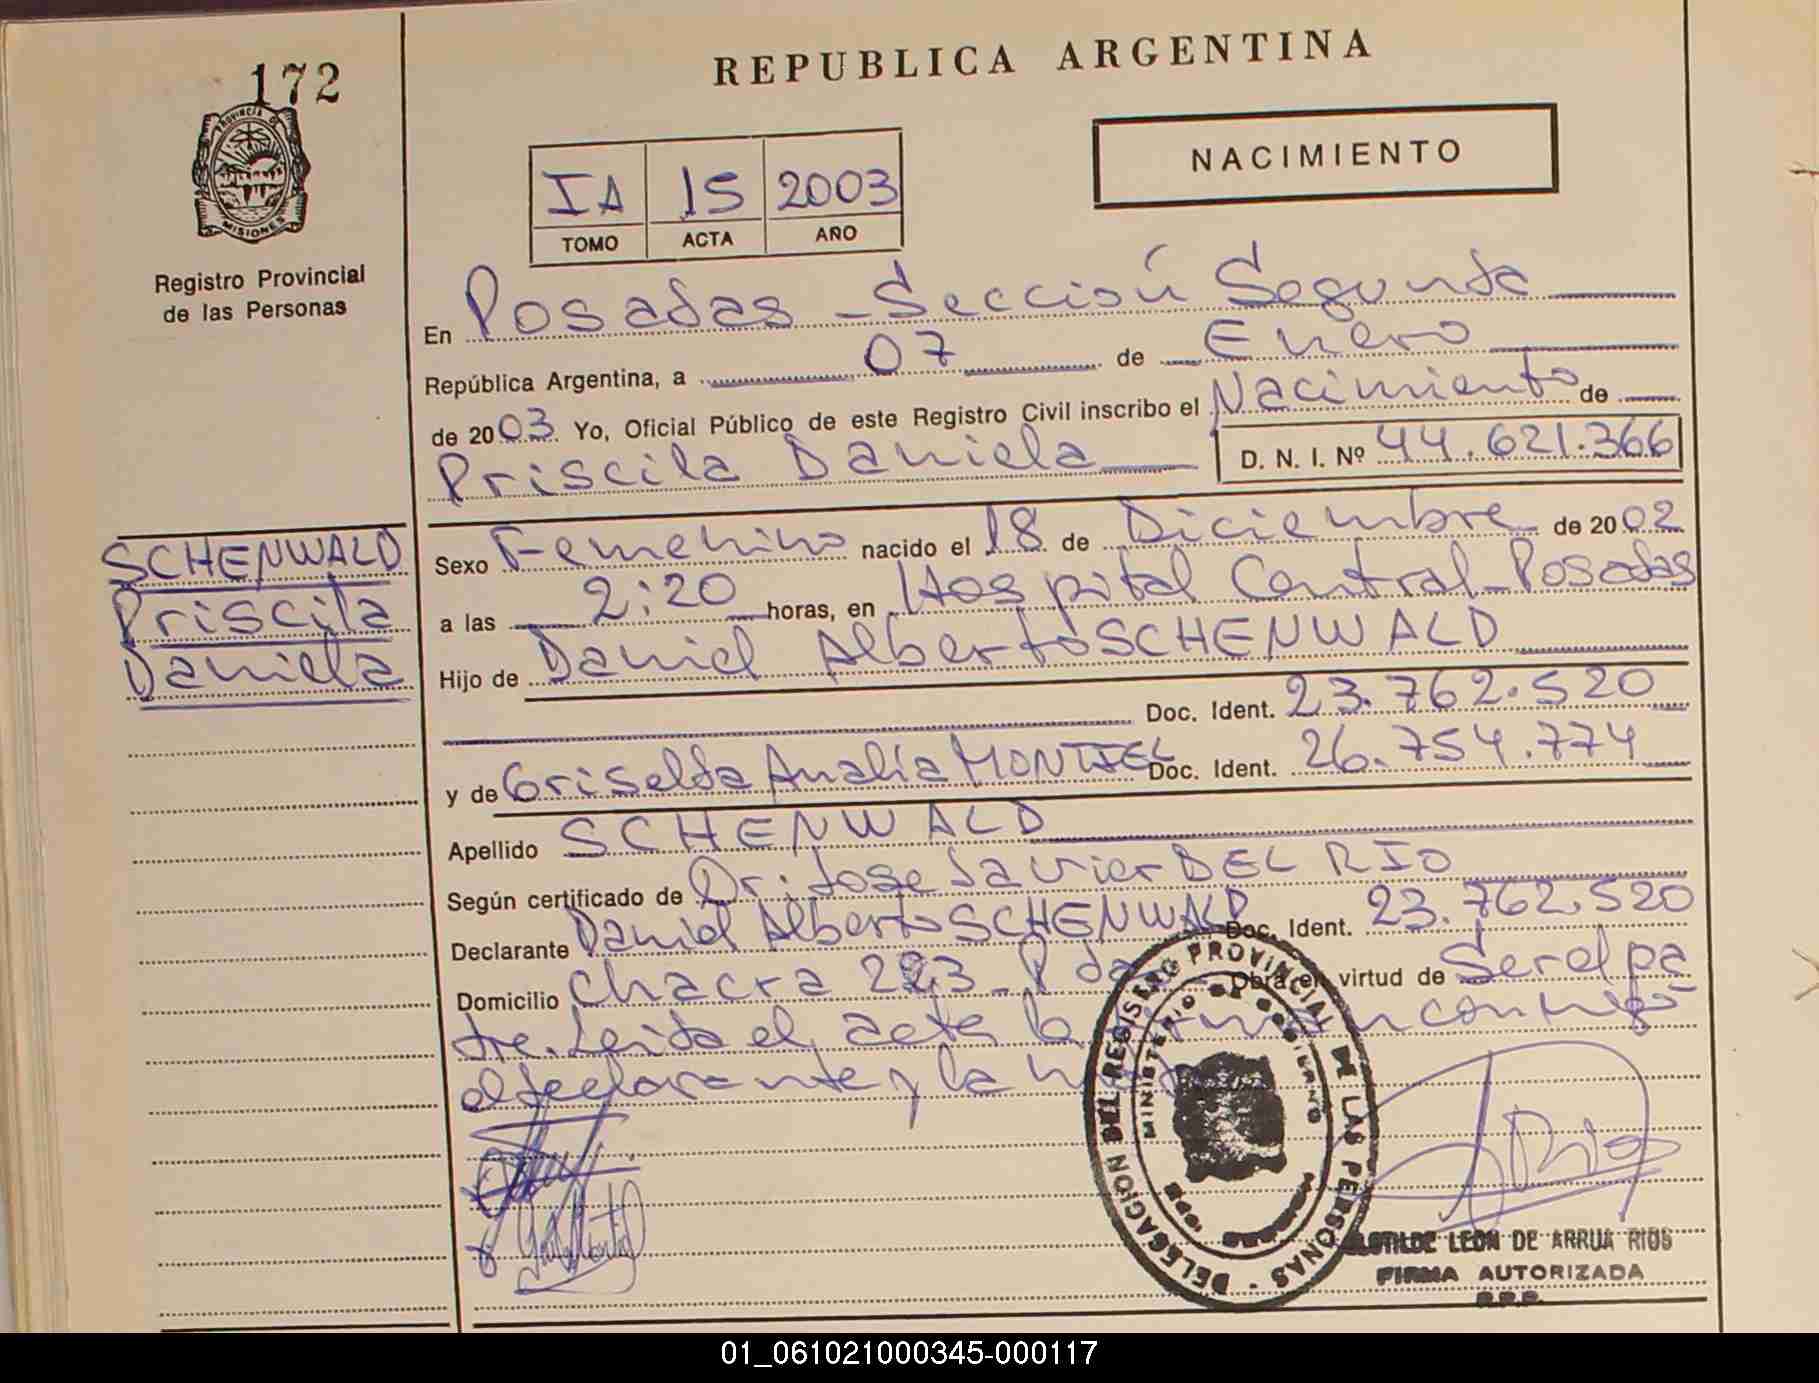 172
REPUBLICA ARGENTINA
PROVINCIA DE
MISIONES
Registro Provincial
de las Personas
IA 15 2003
TOMO ACTA AÑO
NACIMIENTO
En Posadas - Sección Segunda
República Argentina, a 07 de Enero
de 2003 Yo, Oficial Público de este Registro Civil inscribo el Nacimiento de
Priscila Daniela D. N. I. Nº 44.621.366
SCHENWALD
Priscila
Daniela
Sexo Femenino nacido el 18 de Diciembre de 2002
a las 2:20 horas, en Hospital Central-Posadas
Hijo de Daniel Alberto SCHENWALD
Doc. Ident. 23.762.520
y de Griselda Analía MONTIEL Doc. Ident. 26.754.774
Apellido SCHENWALD
Según certificado de Dr. Jose Javier DEL RIO
Declarante Daniel Alberto SCHENWALD Doc. Ident. 23.762.520
Domicilio Chacra 223 - Pdas Obra en virtud de Ser el pa
dre. Leida el acta la firman conmigo
el declarante y la
DELEGACION DEL REGISTRO PROVINCIAL DE LAS PERSONAS
MINISTERIO DE GOBIERNO
CLOTILDE LEON DE ARRUA RIOS
FIRMA AUTORIZADA
R.P.P.
01_061021000345-000117